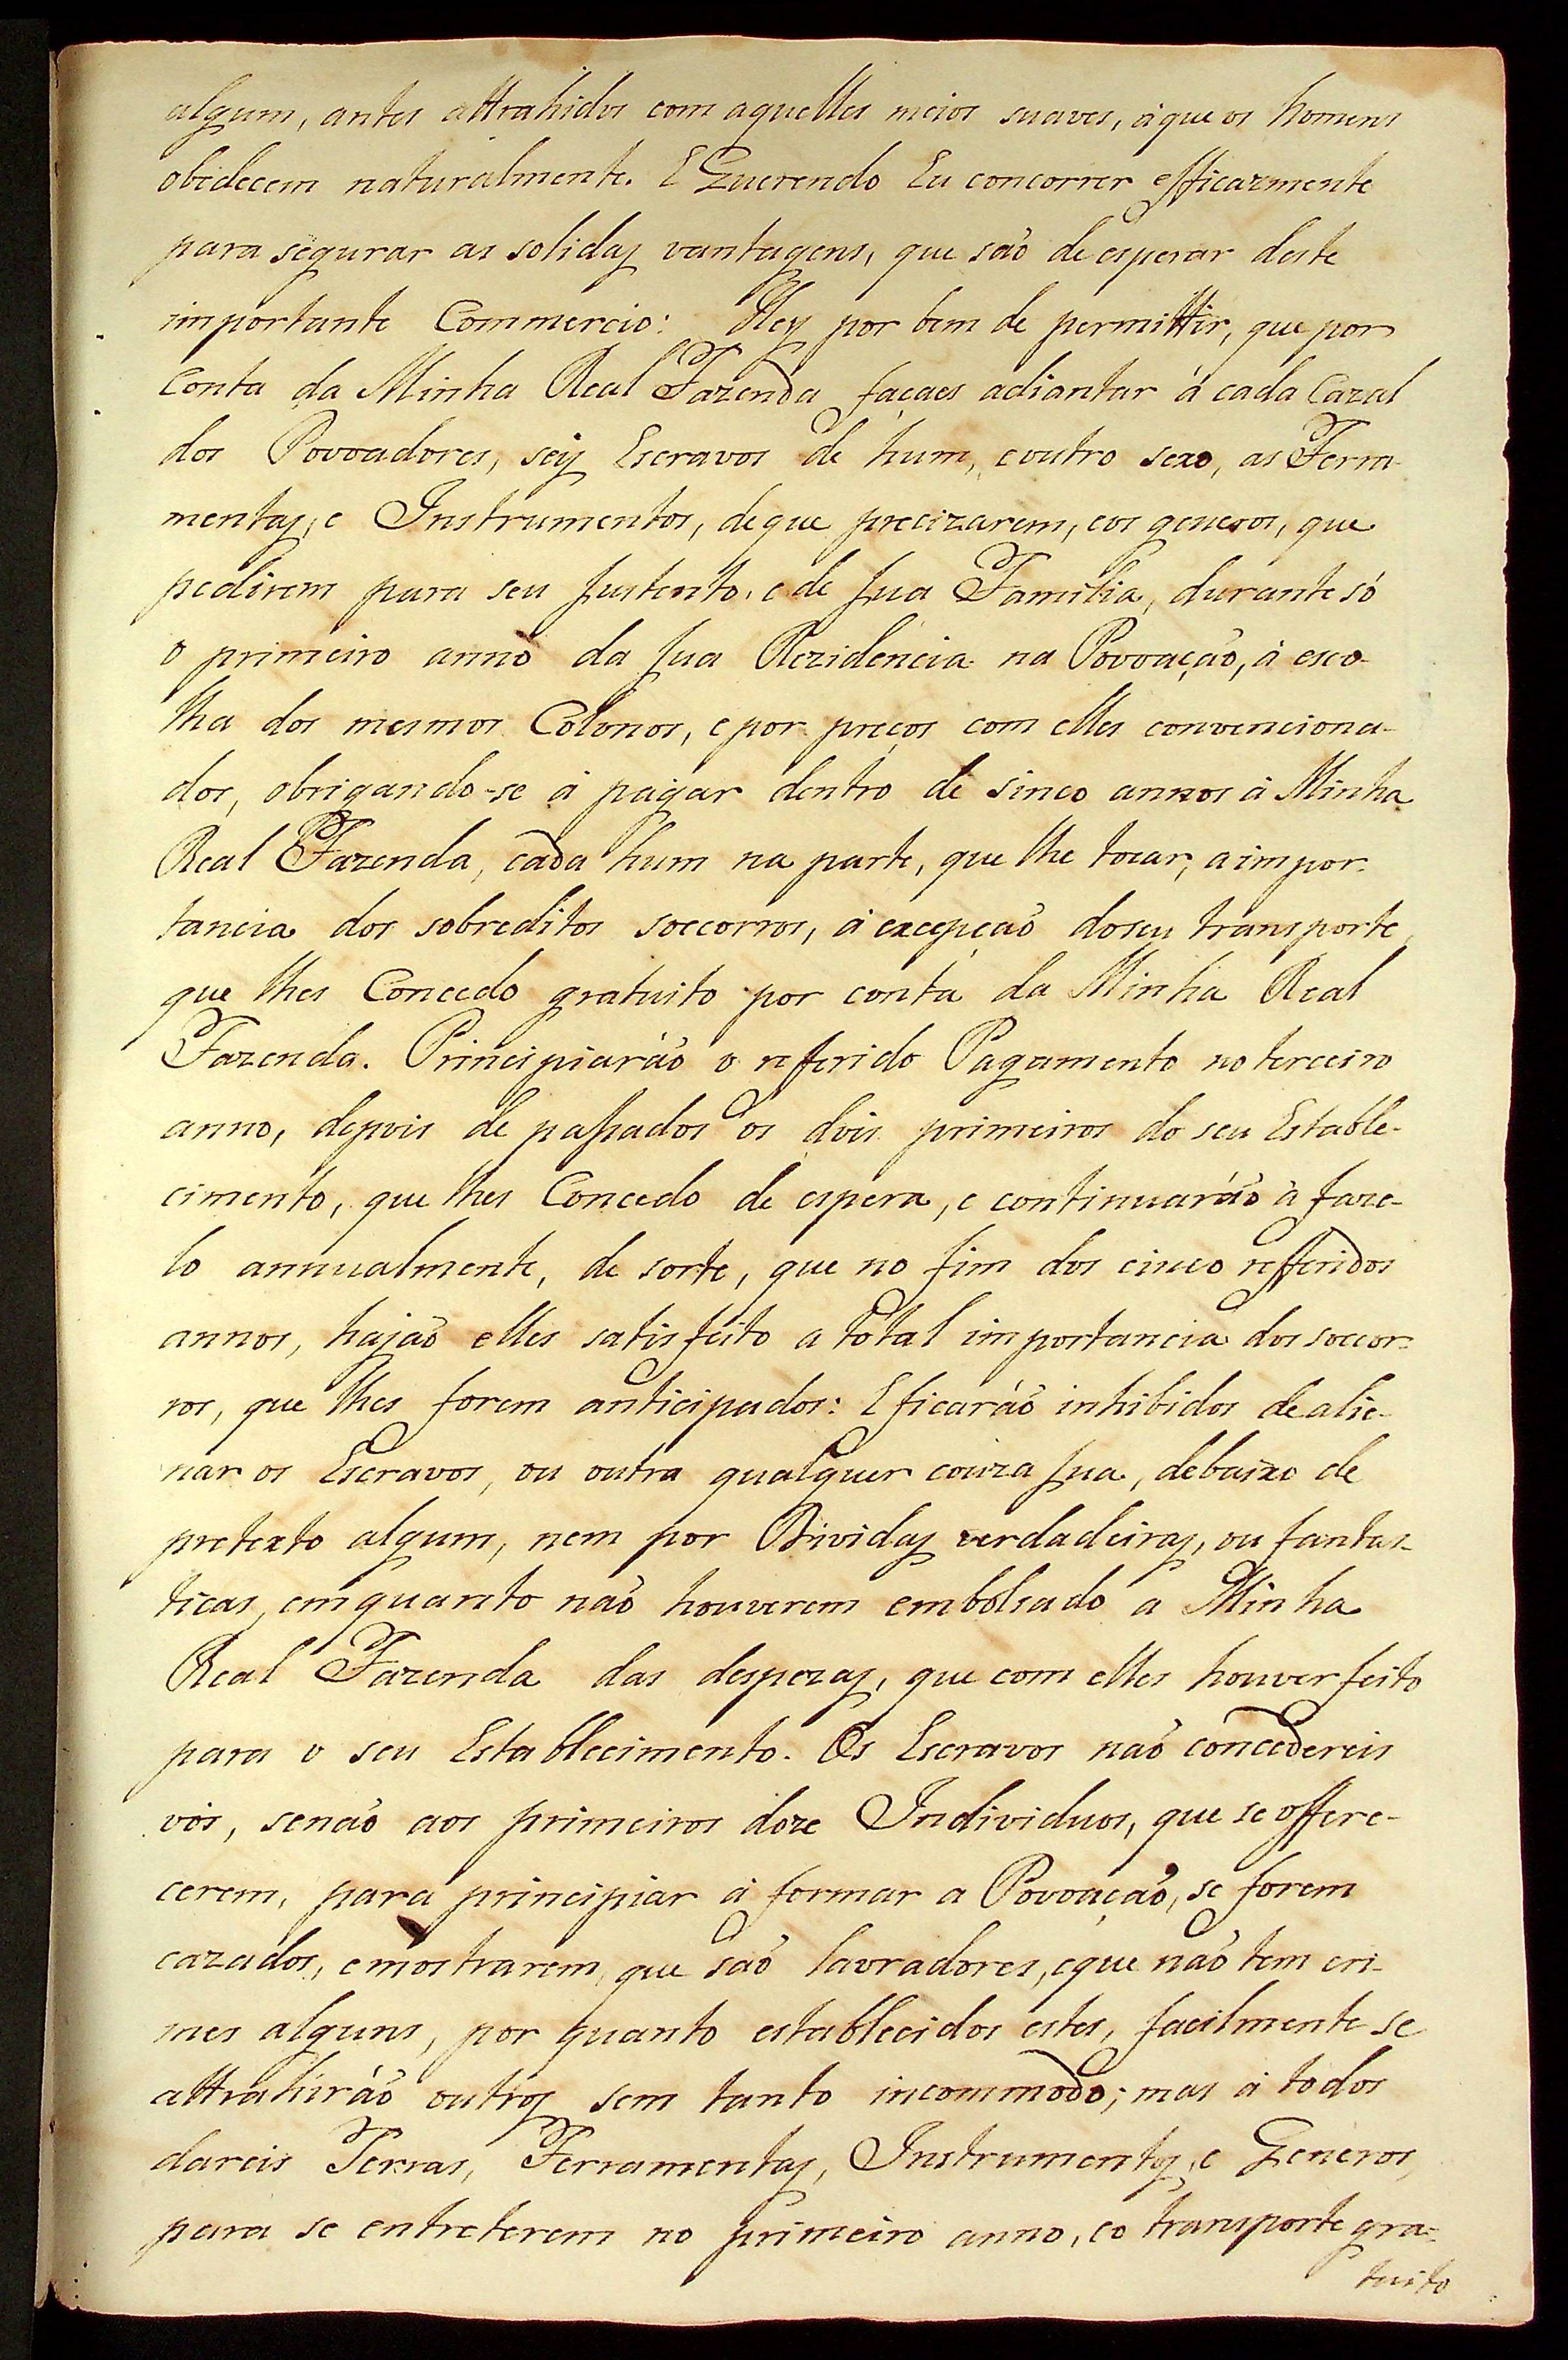 algum, antes attrahidos com aquelles meios suaves, á que os homens
obedecem naturalmente. E Querendo Eu concorrer efficazmente
para segurar as solidas vantagens, que saõ de esperar deste
importante Commercio: Hey por bem de permittir, que por
Conta da Minha Real Fazenda façaes adiantar á cada Cazal
dos Povoadores, seis Escravos de hum, e outro sexo, as Ferra-
mentas, e Instrumentos, de que precizarem, e os generos, que
pedirem para seu sustento, e de sua Familia, durante só
o primeiro anno da sua Rezidencia na Povoaçaõ, á esco-
lha dos mesmos Colonos, e por preços com elles convenciona-
dos, obrigando-se á pagar dentro de sinco annos á Minha
Real Fazenda, cada hum na parte, que lhe tocar, a impor-
tancia dos sobreditos soccorros, á excepçaõ do seu transporte,
que lhes Concedo gratuito por conta da Minha Real
Fazenda. Principiaráõ o referido Pagamento no terceiro
anno, depois de passados os dois primeiros do seu Estable-
cimento, que lhes Concedo de espera, e continuaráõ á faze-
lo annualmente, de sorte, que no fim dos cinco refferidos
annos, hajaõ elles satisfeito a total importancia dos soccor-
ros, que lhes forem anticipados: E ficaráõ inhibidos de alie-
nar os Escravos, ou outra qualquer couza sua, debaixo de
pretexto algum, nem por Dividas verdadeiras, ou fantas-
ticas, emquanto naõ houverem embolsado a Minha
Real Fazenda das despezas, que com elles houver feito
para o seu Establecimento. Os Escravos naõ concedereis
vós, senaõ aos primeiros doze Individuos, que se offere-
cerem, para principiar á formar a Povoaçaõ, se forem
cazados, e mostrarem, que saõ lavradores, e que naõ tem cri-
mes alguns, por quanto establecidos estes, facilmente se
attrahiráõ outros sem tanto incommodo; mas á todos
dareis Terras, Ferramentas, Instrumentos, e Generos,
para se entreterem no primeiro anno, e o transporte gra-
tuito